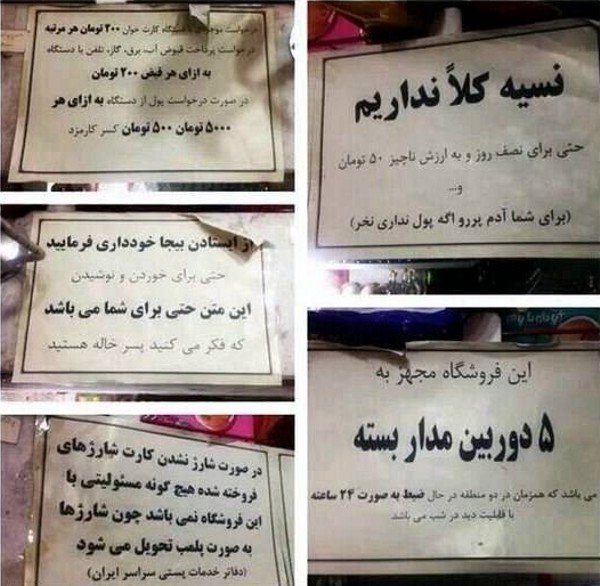 درخواست موجودی با دستگاه کارت خوان ۲۰۰ تومان هر مرتبه
درخواست پرداخت قبوض آب، برق، گاز، تلفن با دستگاه
به ازای هر قبض ۲۰۰ تومان
در صورت درخواست پول از دستگاه به ازای هر
۵۰۰۰ تومان ۵۰۰ تومان کسر کارمزد
نسیه کلاً نداریم
حتی برای نصف روز و به ارزش ناچیز ۵۰ تومان
و...
(برای شما آدم پررو اگه پول نداری نخر)
از ایستادن بیجا خودداری فرمایید
حتی برای خوردن و نوشیدن
این متن حتی برای شما می باشد
که فکر می کنید پسر خاله هستید
این فروشگاه مجهز به
۵ دوربین مدار بسته
می باشد که همزمان در دو منطقه در حال ضبط به صورت ۲۴ ساعته
با قابلیت دید در شب می باشد
در صورت شارژ نشدن کارت شارژهای
فروخته شده هیچ گونه مسئولیتی با
این فروشگاه نمی باشد چون شارژها
به صورت پلمب تحویل می شود
(دفاتر خدمات پستی سراسر ایران)